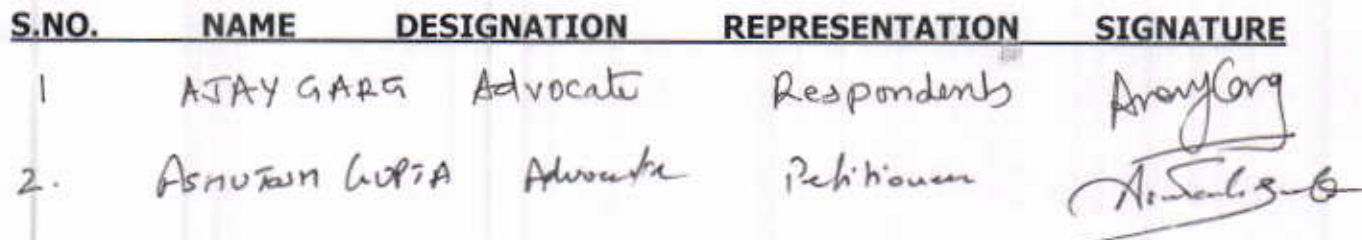 S.NO. NAME DESIGNATION REPRESENTATION SIGNATURE
1 AJAY GARG Advocate Respondents
2. ASHUTOSH GUPTA Advocate Petitioner